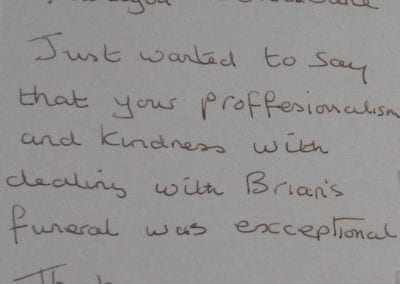 Just wanted to say
that your proffesionalism
and kindness with
dealing with Brian's
funeral was exceptional